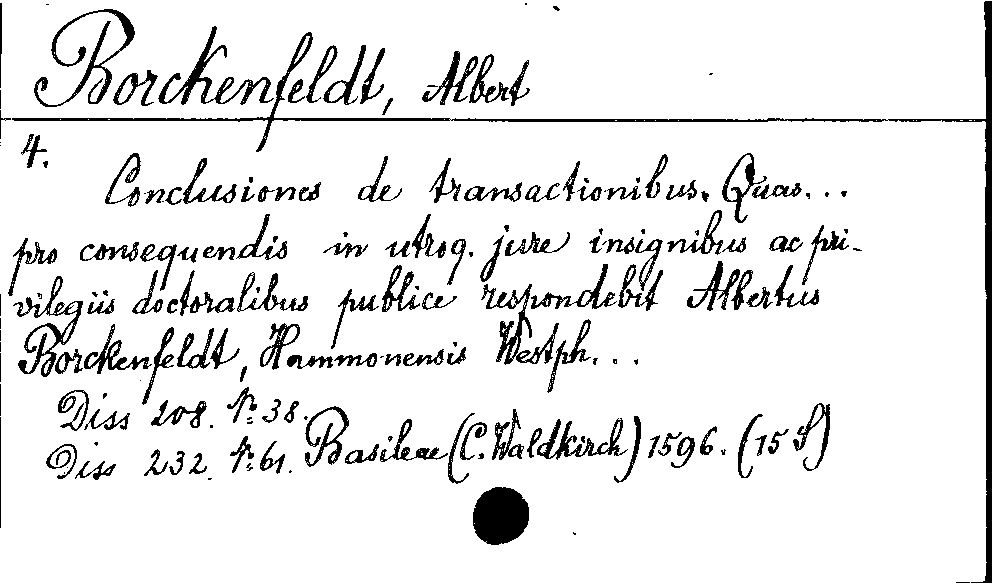 Borckenfeldt, Albert
4.
Conclusiones de transactionibus. Quas...
pro consequendis in utroq. jure insignibus ac pri-
vilegiis doctoralibus publice respondebit Albertus
Borckenfeldt, Hammonensis Westph...
Diss 208. No: 38.
Diss 232. No: 61. Basileae (C. Waldkirch) 1596. (15 S)